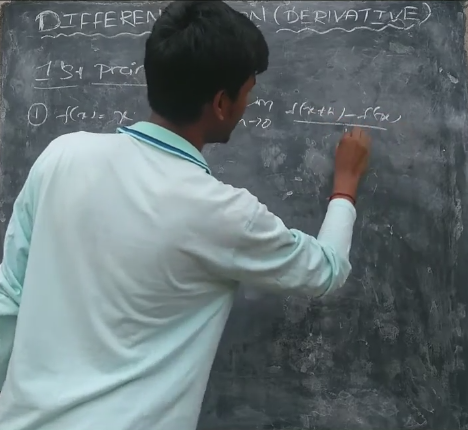 DIFFEREN ON (DERIVATIVE)
1st Prin
① f(x) = x m f(x+h) - f(x)
→0